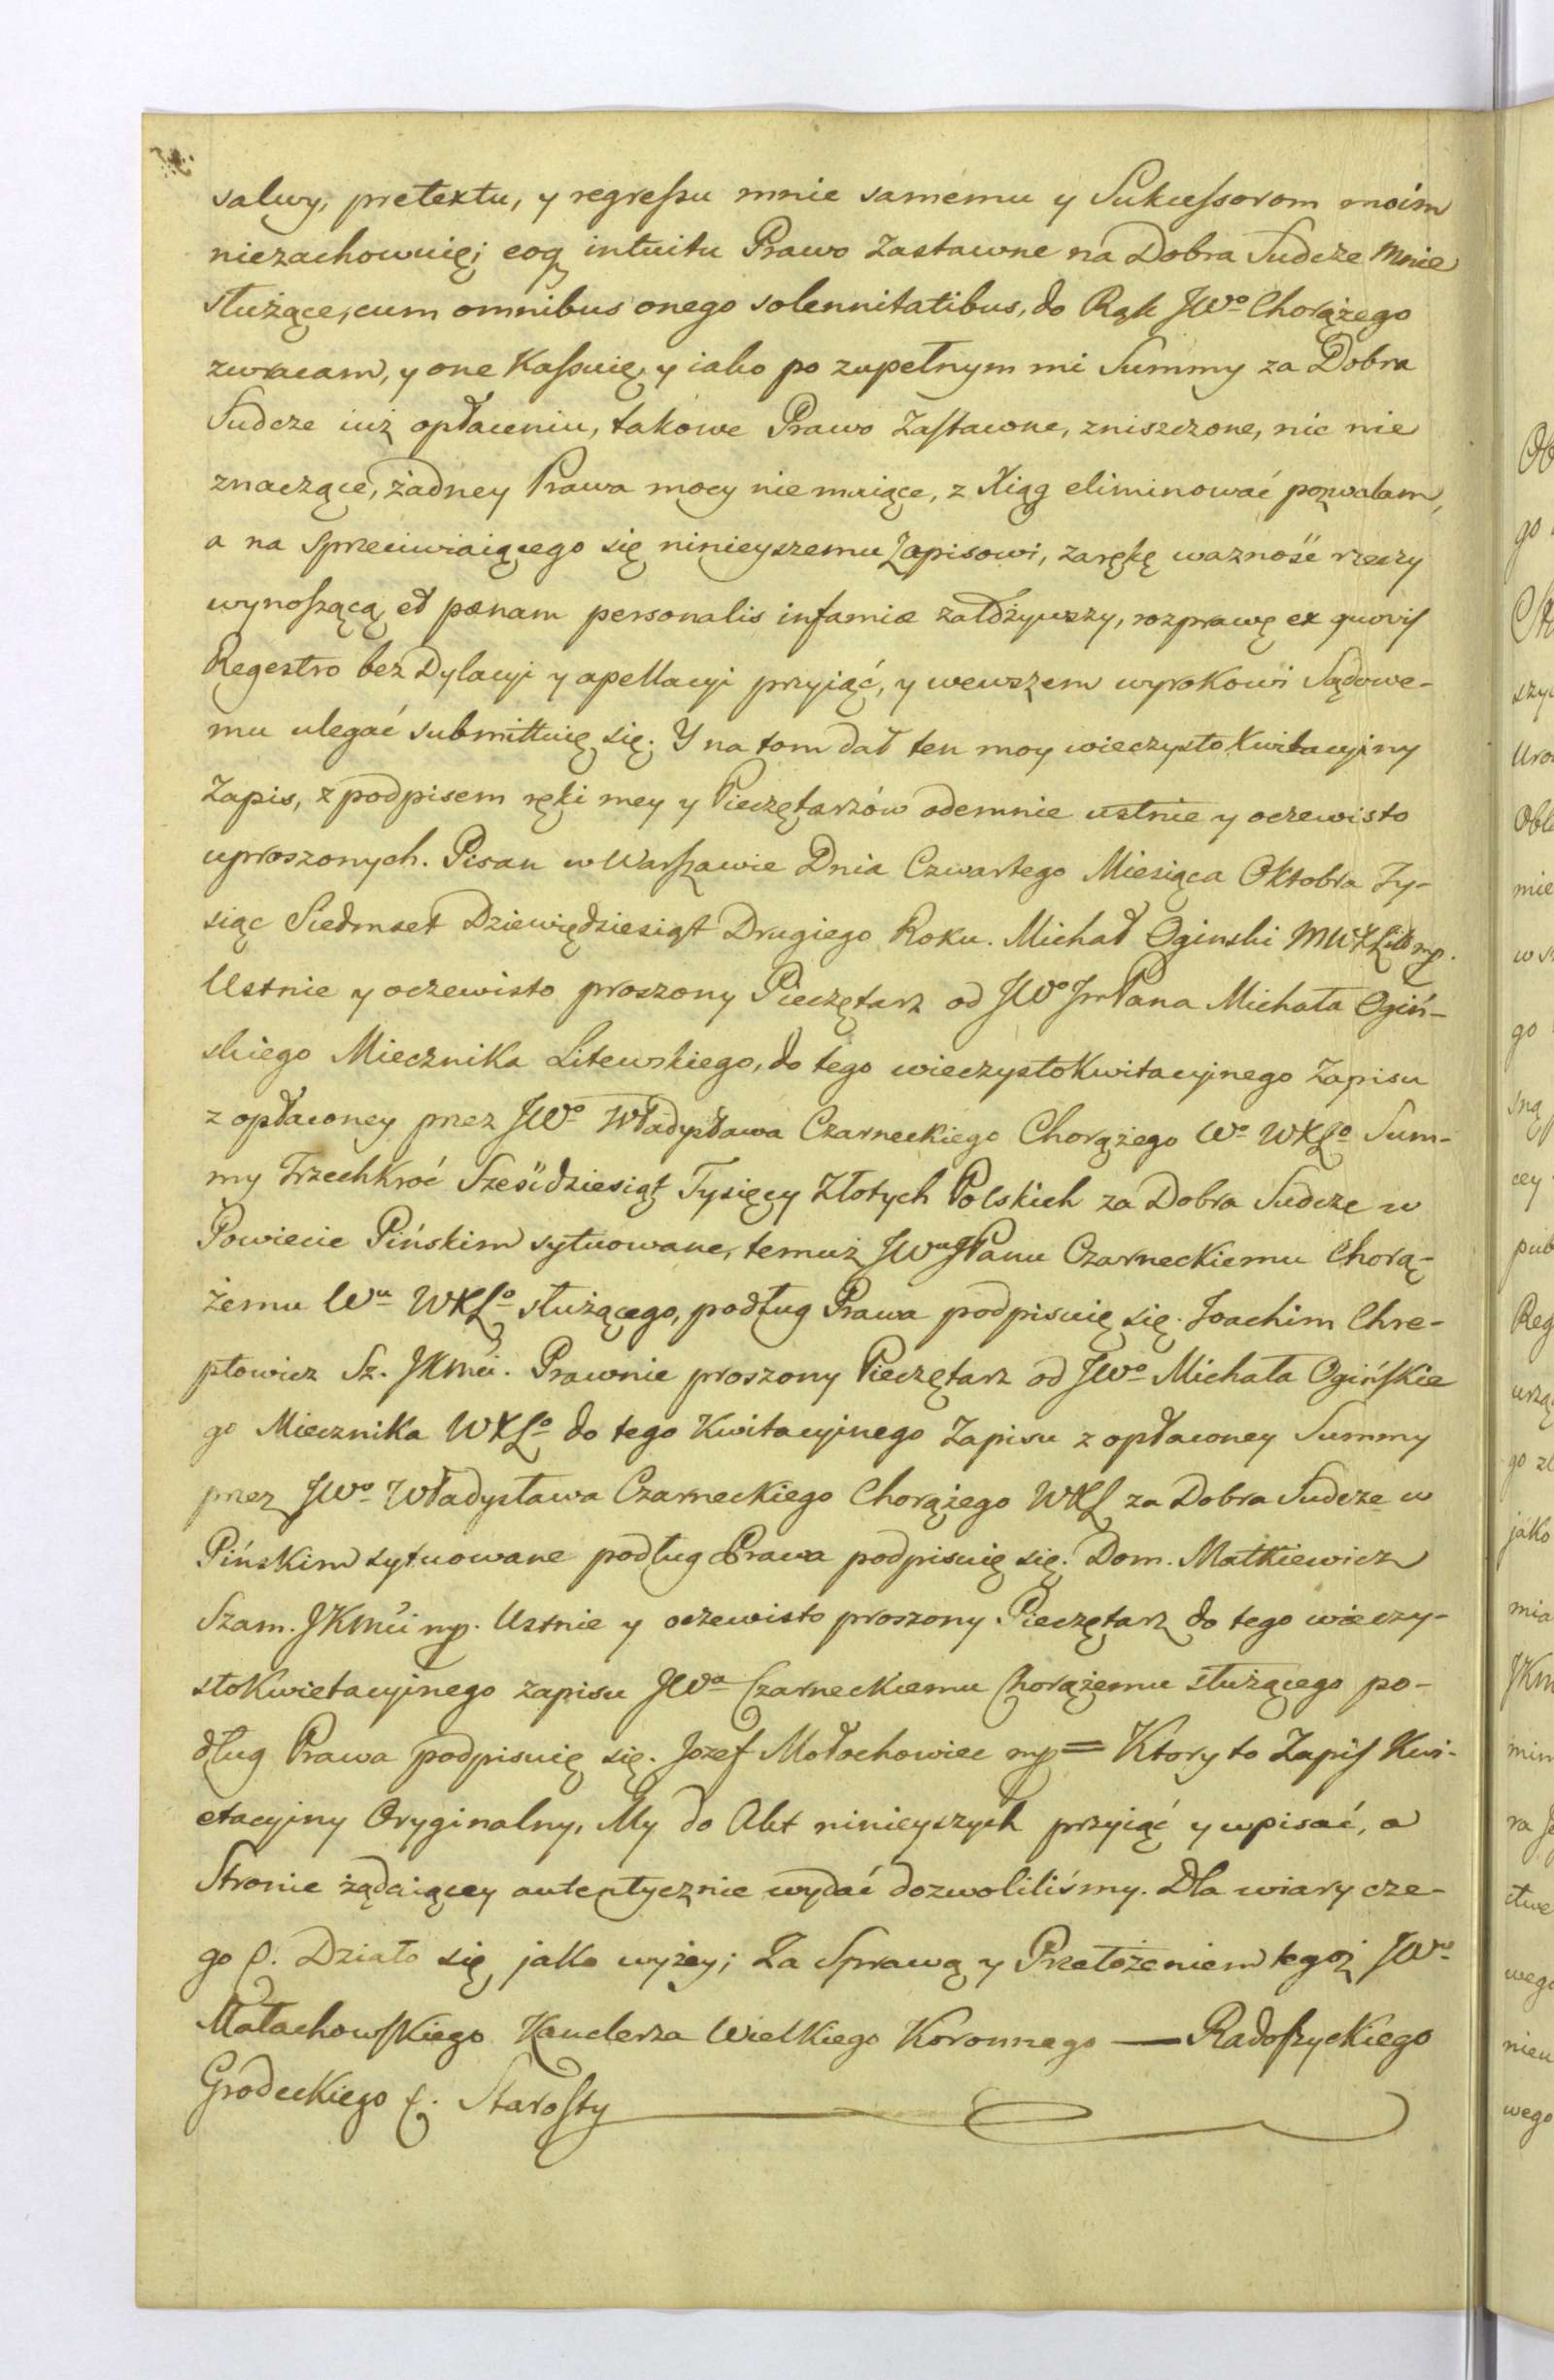 salwy, pretextu, y regressu mnie samemu y Sukcessorom moim
niezachowuię; eoq intuitu Prawo Zastawne na Dobra Sudcze mnie
służące, cum omnibus onego solennitatibus, do Rąk JWo Chorążego
zwracam, y one Kassuię, y iako po zupełnym mi Summy za Dobra
Sudcze iuż opłaceniu, takowe Prawo Zastawne, zniszczone, nic nie
znaczące, żadney Prawa mocy nie maiące, z Xiąg eliminować pozwalam,
a na sprzeciwiaiącego się ninieyszemu Zapisowi, zarękę ważność rzeczy
wynoszącą et pænam personalis infamiæ założywszy, rozprawę ex quovis
Regestro bez Dylacyi y apellacyi przyiąć, y wewszem wyrokowi Sądowe-
mu ulegać submittuię się. Y na tom dał ten moy wieczysto Kwitacyiny
Zapis, z podpisem ręki mey y Pieczętarzów odemnie ustnie y oczewisto
uproszonych. Pisan w Warszawie Dnia Czwartego Miesiąca Oktobra Ty-
siąc Siedmset Dziewiędziesiąt Drugiego Roku. Michał Oginski MWXLitt mp.
Ustnie y oczewisto proszony Pieczętarz od JWo JmPana Michała Ogiń-
skiego Miecznika Litewskiego, do tego wieczystoKwitacyinego Zapisu
z opłaconey przez JWo Władysława Czarneckiego Chorążego Wo WXLo Sum-
my Trzechkroć Sześćdziesiąt Tysięcy Złotych Polskich za Dobra Sudcze w
Powiecie Pińskim sytuowane, temuż JWu JPanu Czarneckiemu Chorą-
żemu Wu WXLo służącego, podług Prawa podpisuię się. Joachim Chre-
ptowicz Sz. JKmći. Prawnie proszony Pieczętarz od JWo Michała Ogińskie
go Miecznika WXLo do tego Kwitacyinego Zapisu z opłaconey Summy
przez JWo Władysława Czarneckiego Chorążego WXL za Dobra Sudcze w
Pińskim sytuowane podług Prawa podpisuię się. Dom. Matkiewicz
Szam. JKmći mp. Ustnie y oczewisto proszony Pieczętarz do tego wieczy-
stoKwietacyinego zapisu JWo Czarneckiemu Chorążemu służącego po-
dług Prawa podpisuię się. Jozef Mołochowiec mp = Ktory to Zapis Kwi-
etacyiny Oryginalny, My do Akt ninieyszych przyiąć y wpisać, a
Stronie żądaiącey autentycznie wydać dozwoliliśmy. Dla wiary cze-
go &. Działo się jako wyżey; Za Sprawą y Przełożeniem tegoż JWo
Małachowskiego Kanclerza Wielkiego Koronnego — Radoszyckiego
Grodeckiego &. Starosty